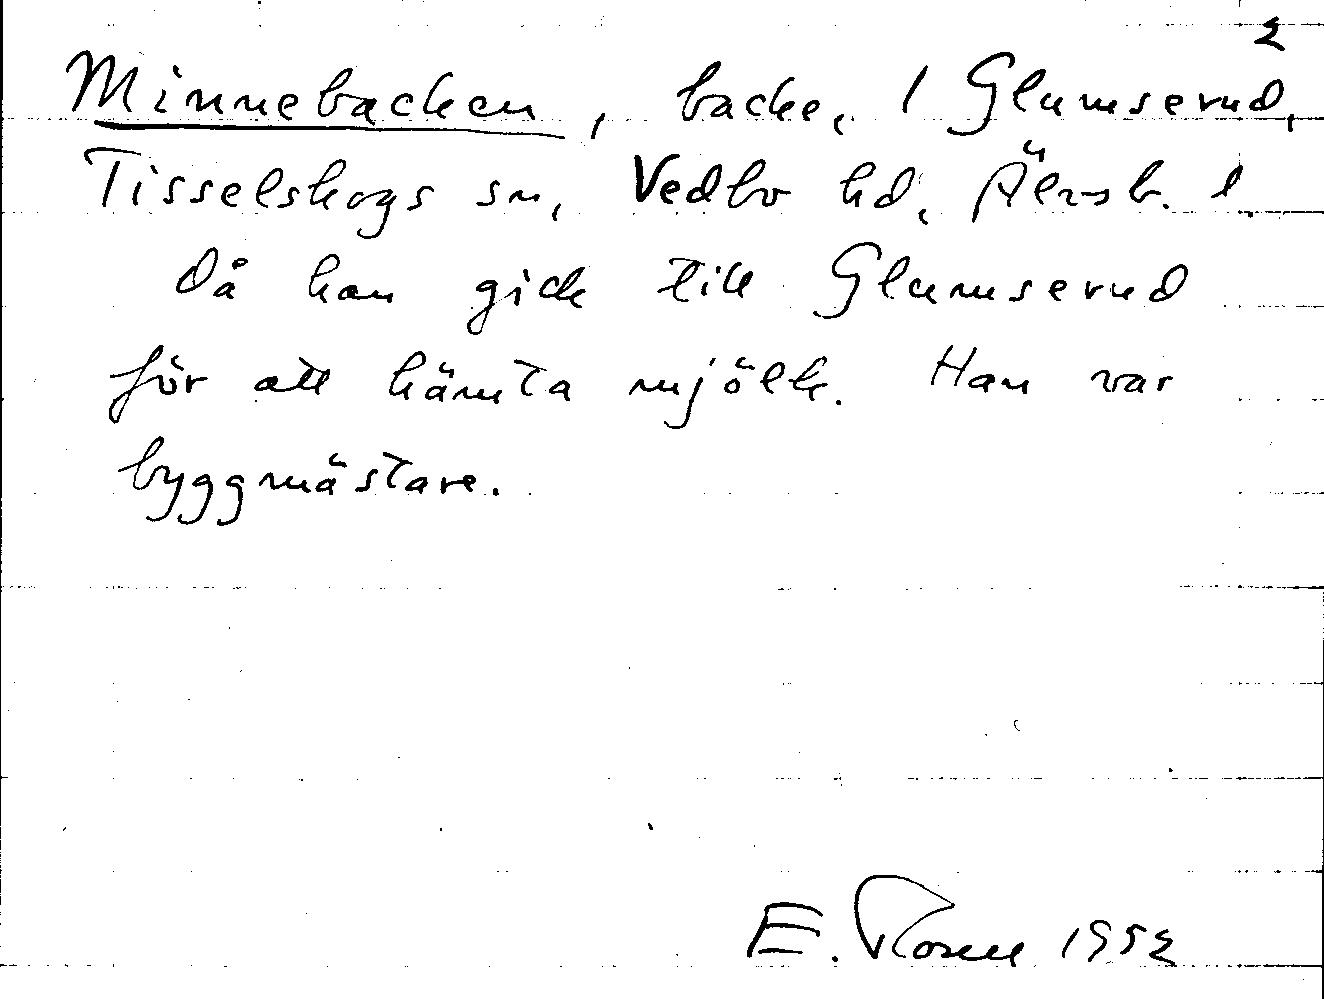 2
Minnebacken, backe, 1 Glumserud,
Tisselskogs sn, Vedbo hd, Älvsb. l.
då han gick till Glumserud
för att hämta mjölk. Han var
byggmästare.
E. Rosell 1952